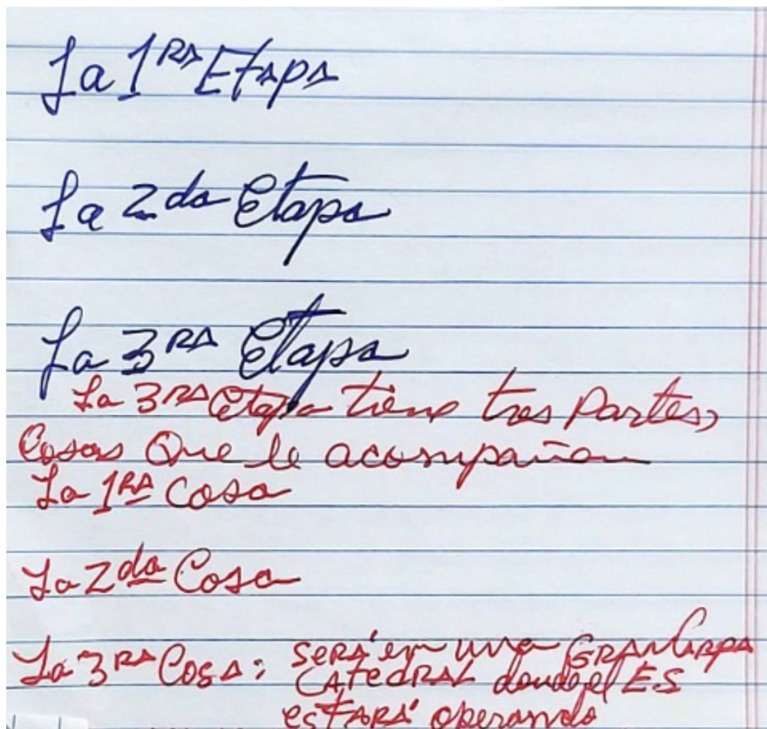 La 1RA Etapa
La 2da Etapa
La 3RA Etapa
La 3RA Etapa tiene tres Partes,
Cosas Que le acompañan
La 1RA Cosa
La 2da Cosa
La 3RA Cosa: SERÁ en una GRAN CARPA
CATEDRAL donde el E.S
ESTARÁ operando